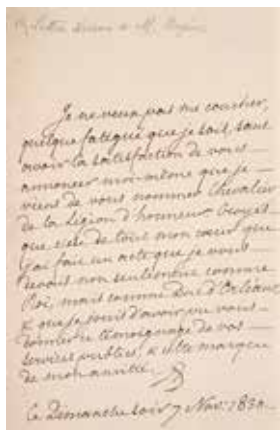 Je ne veux pas me coucher,
quelque fatigué que je sois, sans
avoir la satisfaction de vous
annoncer moi-même que je
viens de vous nommer Chevalier
de la Légion d'honneur. Croyez
que c'est de tout mon cœur que
j'ai fait un acte que je vous
devais non seulement comme
Roi, mais comme Duc d'Orléans,
& que je jouis d'avoir pu vous
donner ce témoignage de vos
services publics, & cette marque
de mon amitié.
Ce Dimanche soir 7 Nov: 1830.